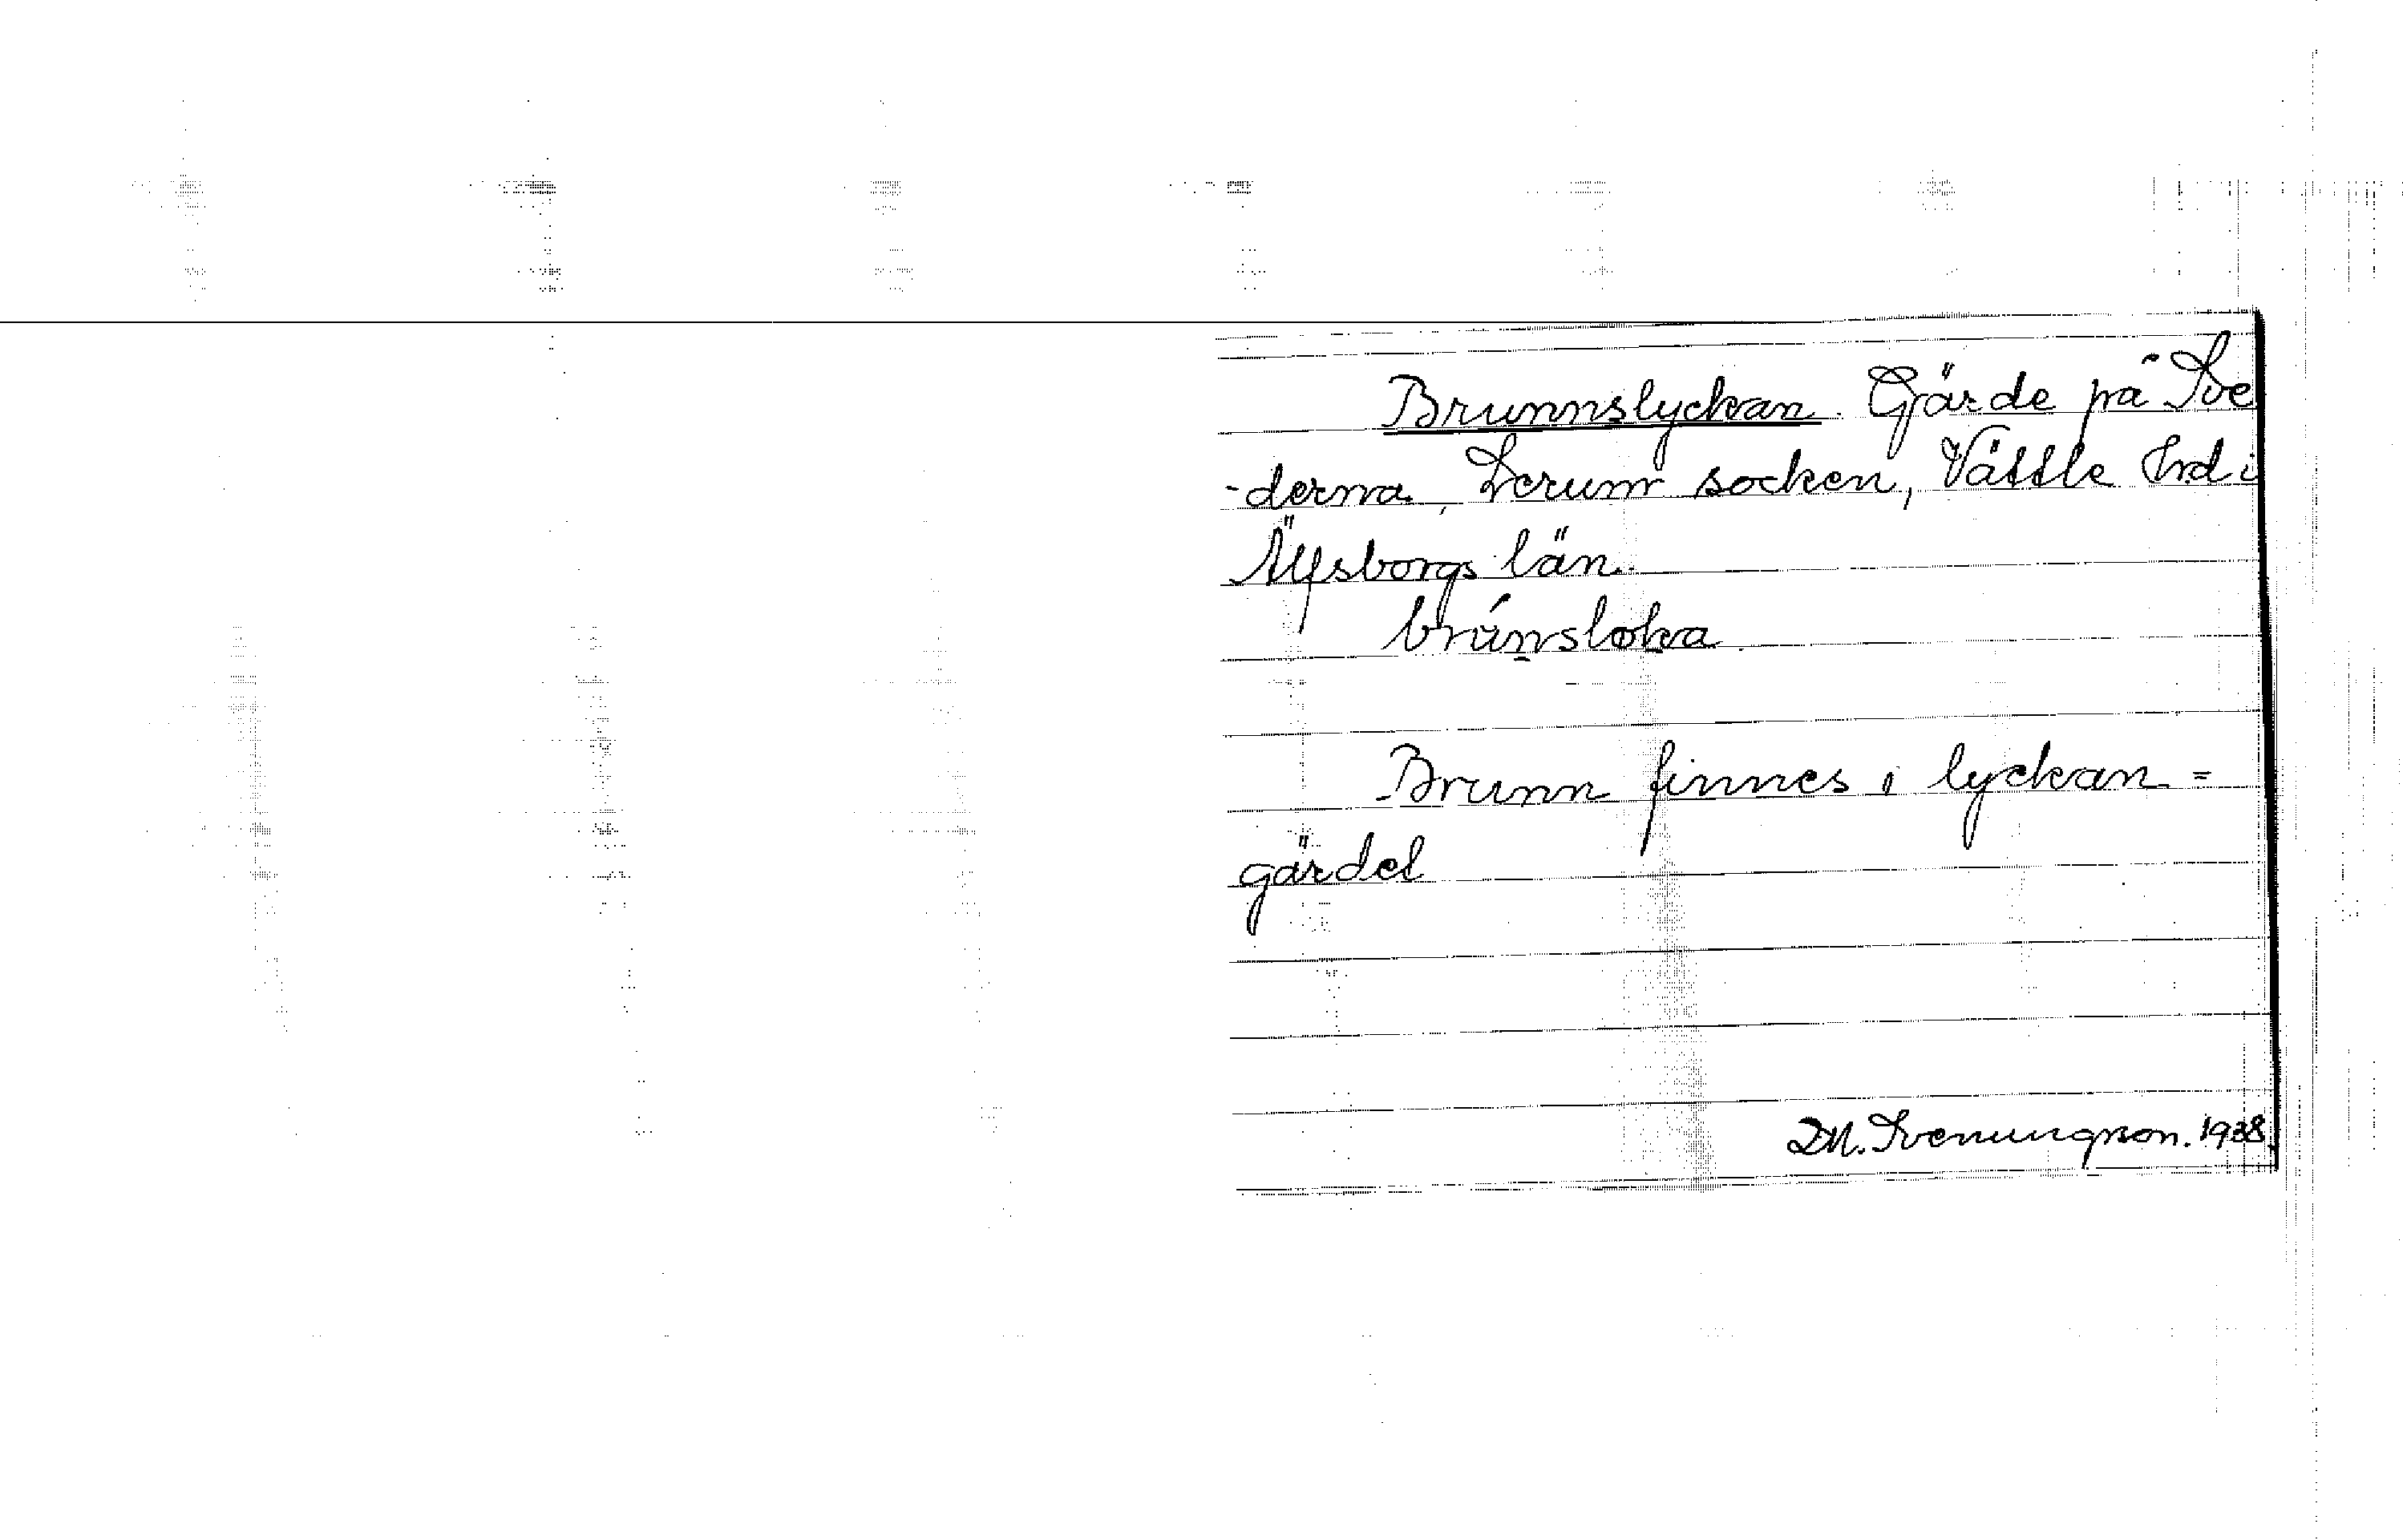 Brunnslyckan. Gärde på Sve
-derna, Lerum socken, Vättle hrd i
Älfsborgs län.
brúnsloka.
Brunn finnes i lyckan =
gärdet
D.M. Svenungson. 1938